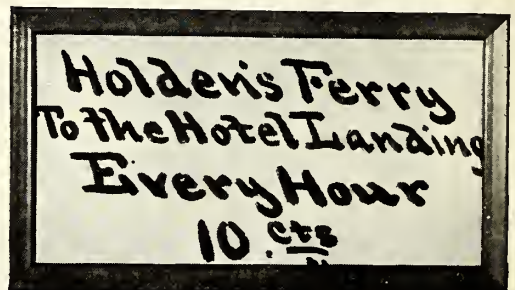 Holden's Ferry
To the Hotel Landing
Every Hour
10. cts